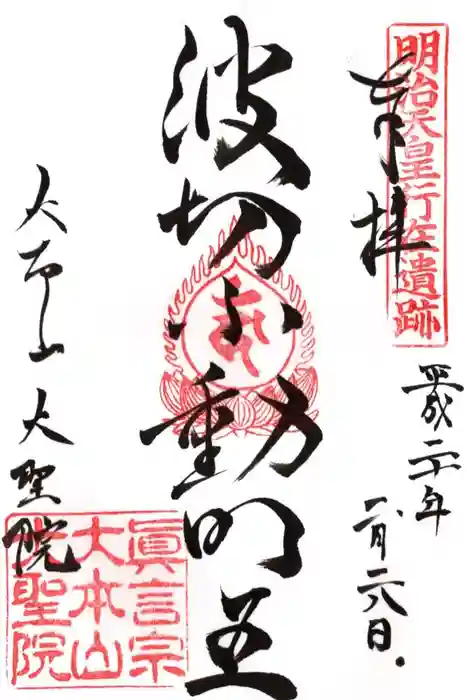 明治天皇行在遺跡
奉拝
平成二十年
月二日
波切不動明王
大本山 大聖院
眞言宗
大本山
大聖院